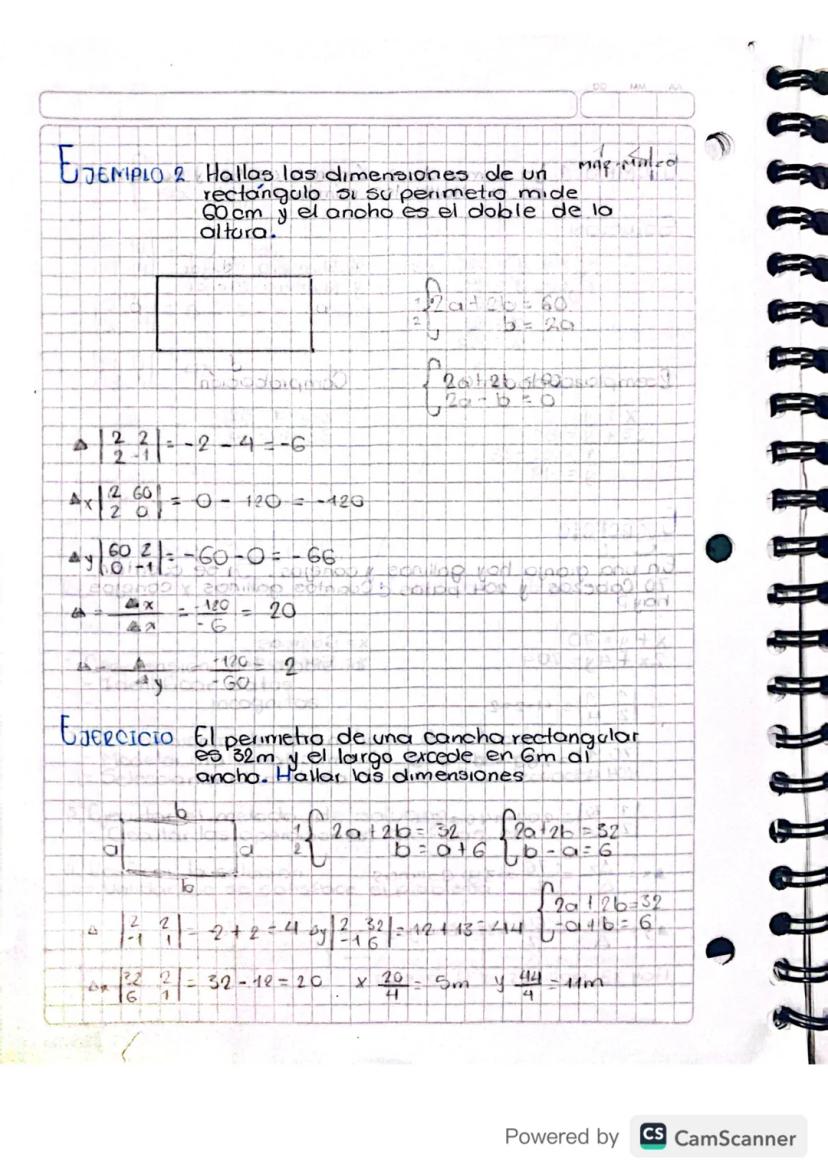 DD MM AA
EJEMPLO 2 Hallas las dimensiones de un
rectángulo si su perimetro mide
60cm y el ancho es el doble de la
altura.
1 { 2a + 2b = 60
2 b = 2a
{ 2a + 2b = 60
2a - b = 0
Δ |2 2| = -2 - 4 = -6
2 -1
Δx |2 60| = 0 - 120 = -120
2 0
Δy |60 2| = -60 - 0 = -66
0 -1
Δ = Δx = -120 = 20
Δx -6
Δ = Δ -120 = 2
Δy -60
EJERCICIO El perimetro de una cancha rectangular
es 32m y el largo excede en 6m al
ancho. Hallar las dimensiones
b
a a
b
1 { 2a + 2b = 32 { 2a + 2b = 32
2 b = a + 6 b - a = 6
{ 2a + 2b = 32
-a + b = 6
Δ |2 2| = 2 + 2 = 4 Δy |2 32| = 12 + 13 = 44
-1 1 -1 6
Δx |32 2| = 32 - 12 = 20 x 20 = 5m y 44 = 11m
6 1 4 4
Powered by CS CamScanner